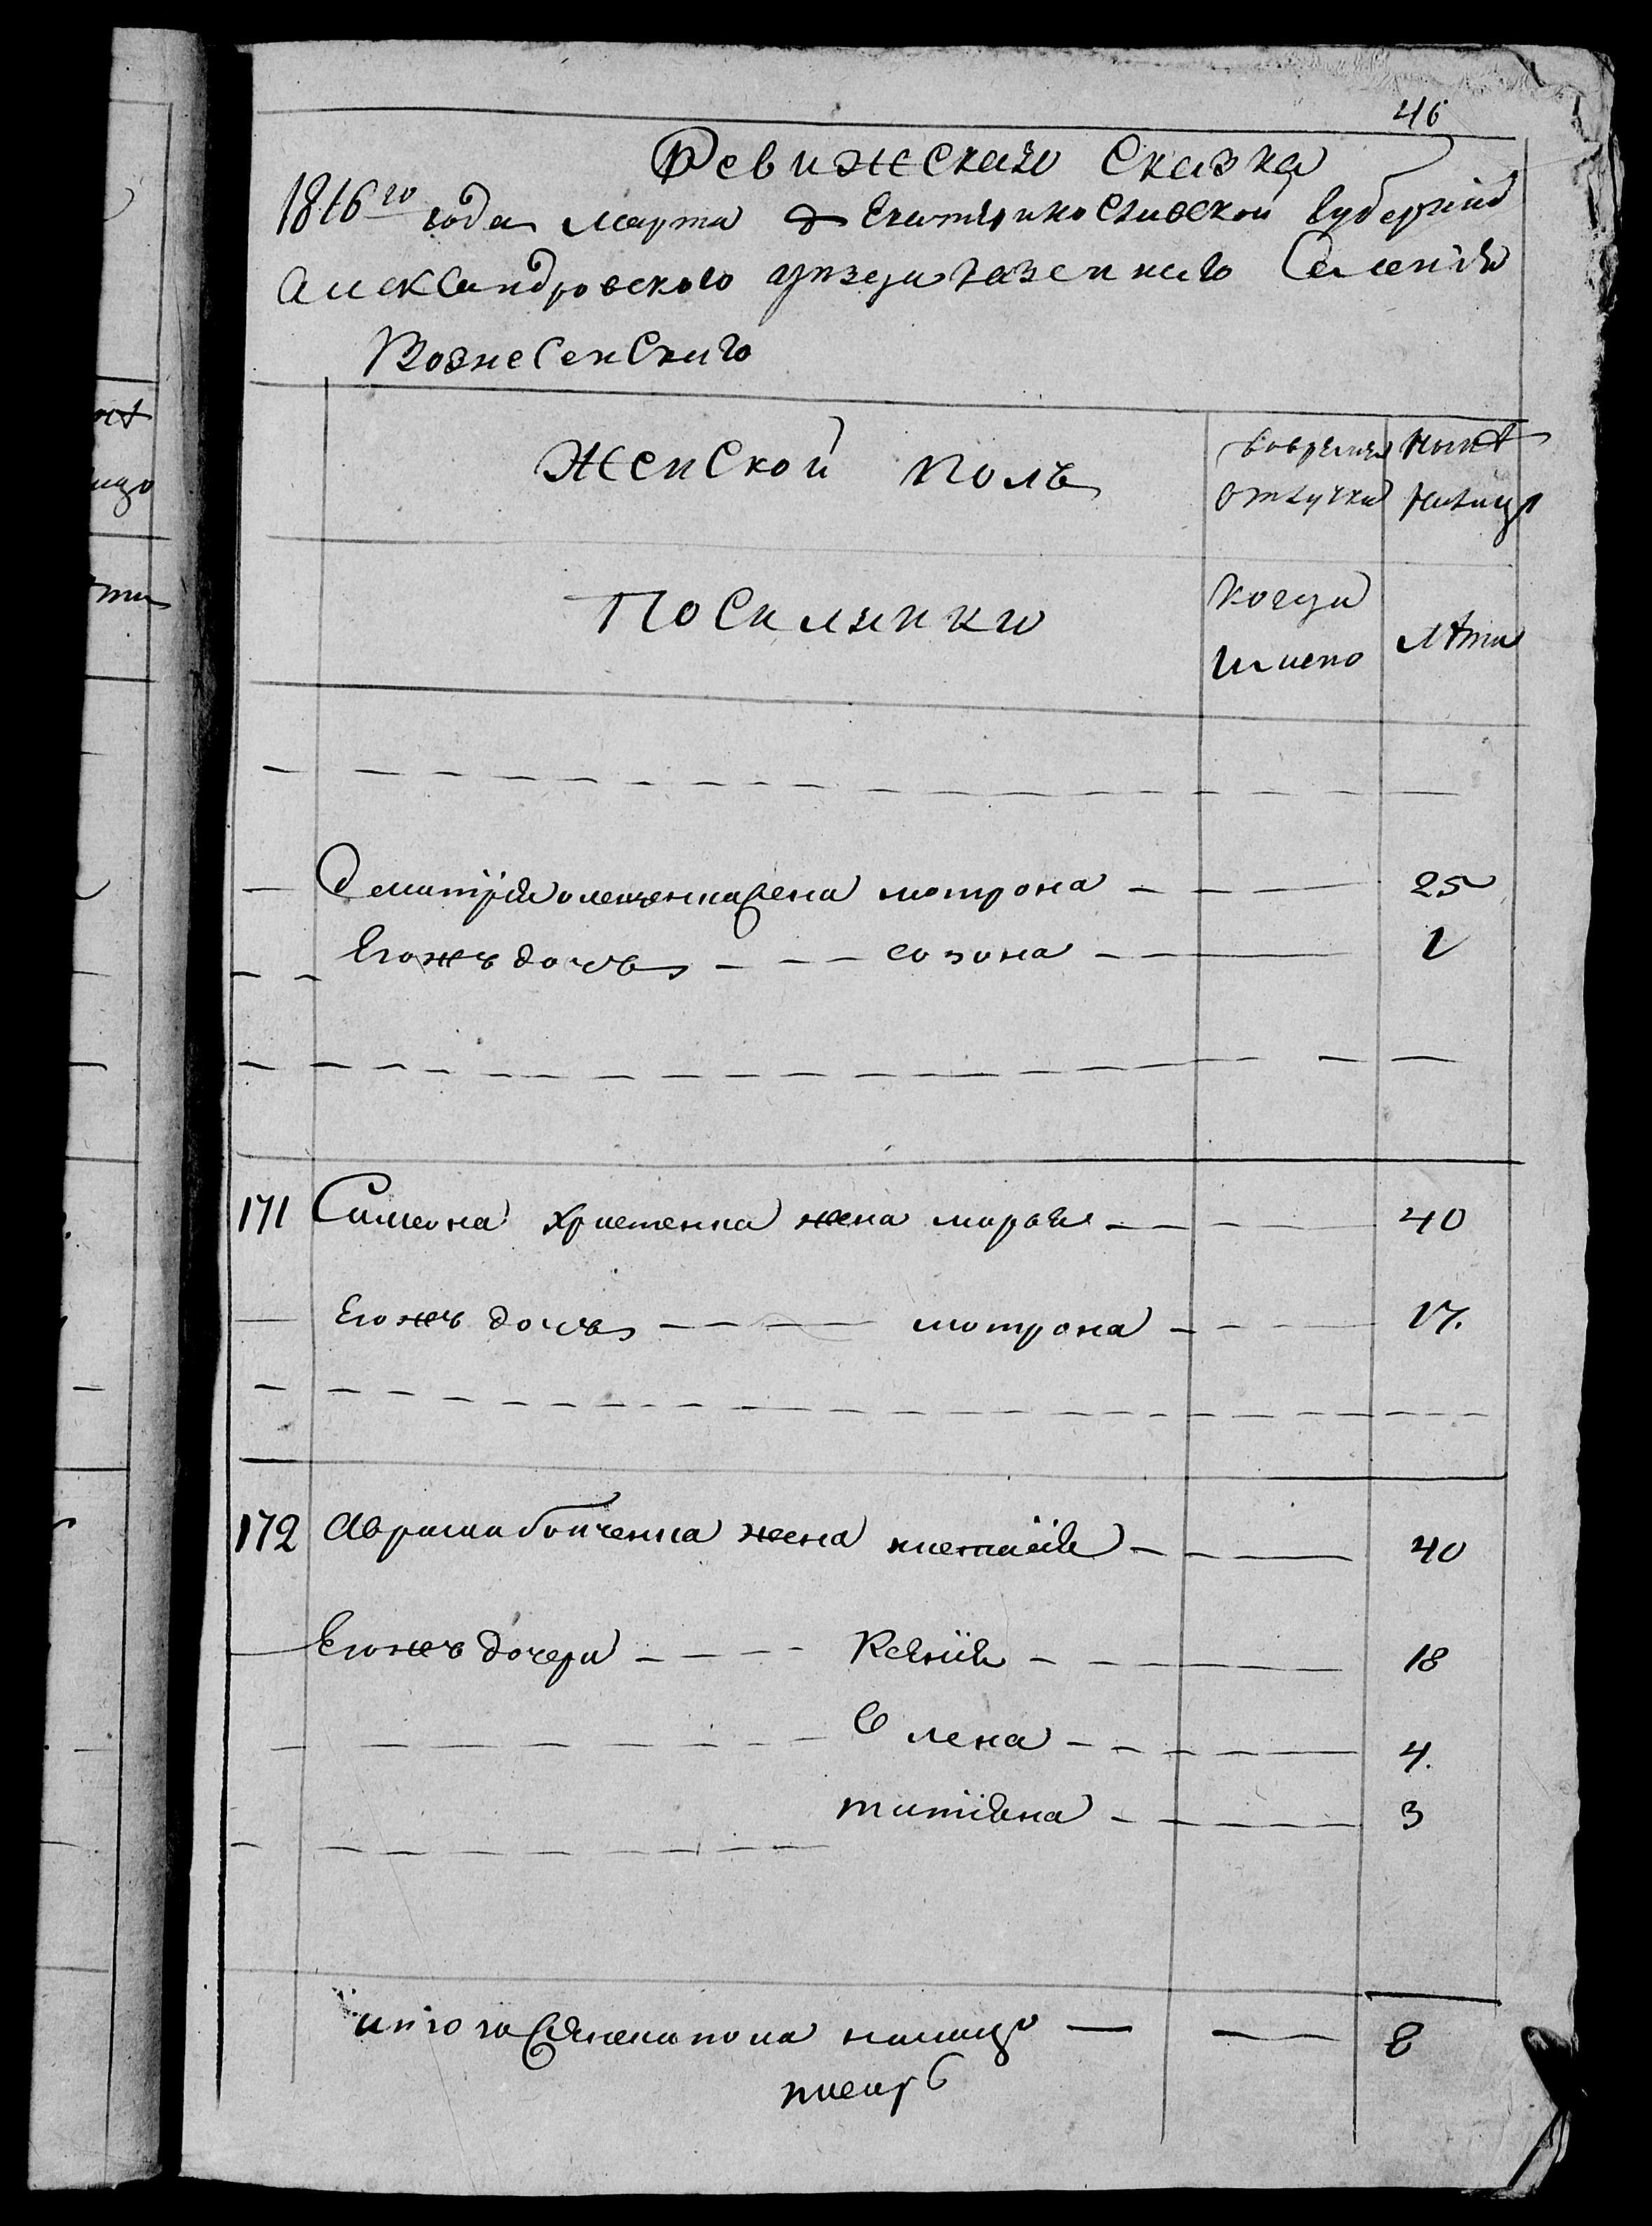 46
Ревижская Сказка
1816го года марта Екатериносла­вской Губернии
Александровского уезда казенного Селения
Вознесенского
Женской полъ
вовремя
отлучки
Ныне
налицо
Поселянки
когда
лета
Дмитрия жена мотрона 25
Егожъ дочь созона 1
171 Симеона Христенка жена марья 40
Егожъ дочь мотрона 17.
172 Аврама бойченка жена настасия 40
Егожъ дочери Ксения 18
Олена 4.
татияна 3
итого женска пола налицо 8